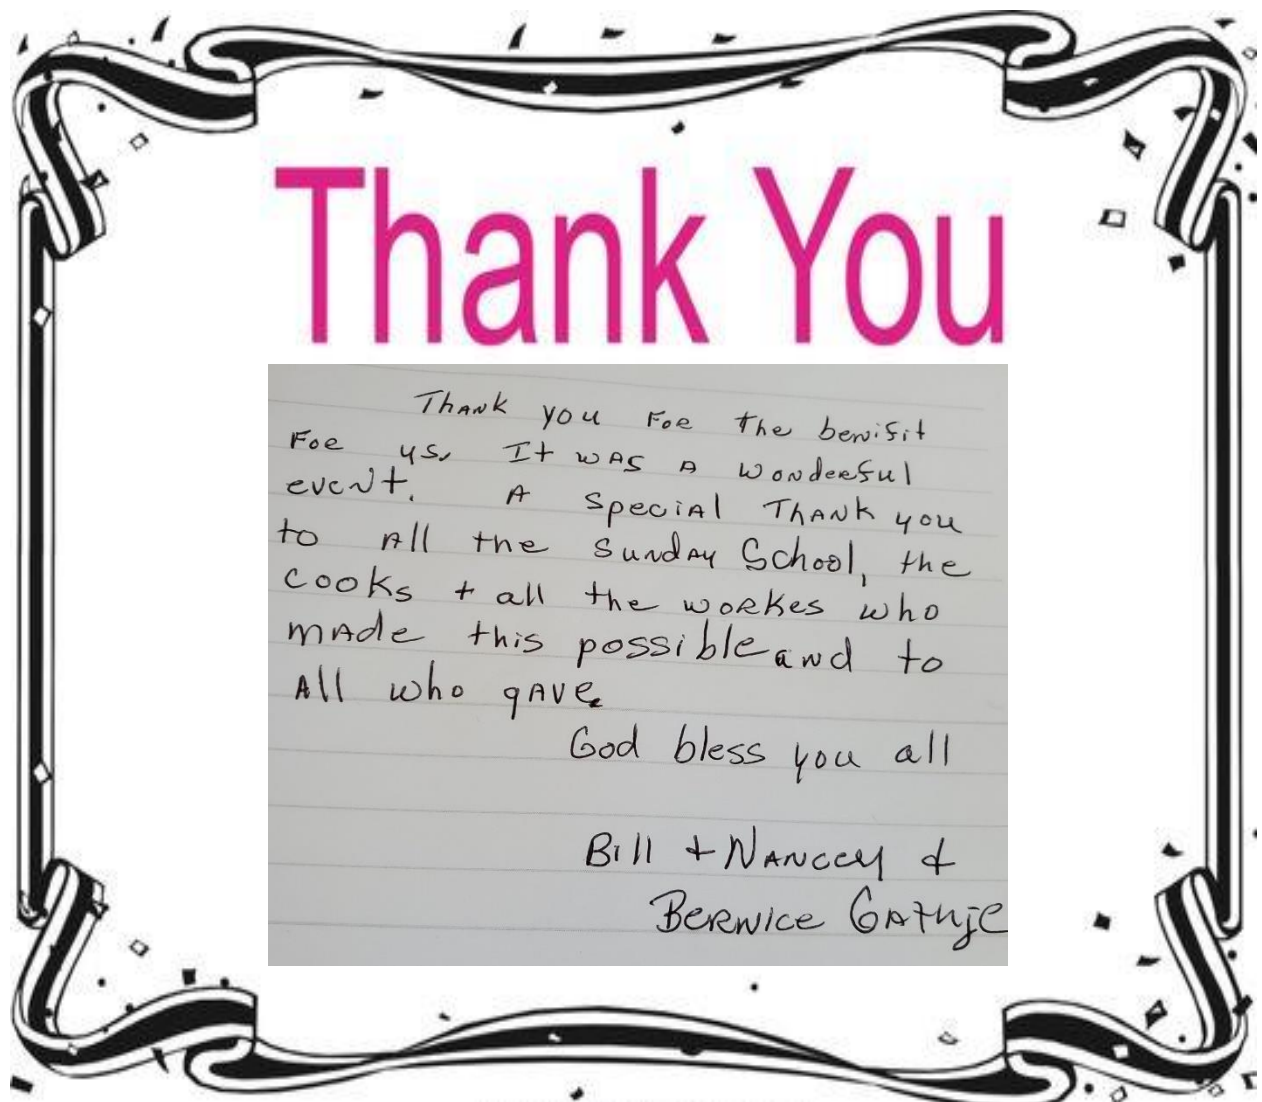 Thank You
Thank you For the benifit
For us. It was a wonderful
event. A special Thank you
to All the Sunday School, the
cooks + all the workes who
made this possible and to
All who gave.
God bless you all
Bill + Nancey +
Bernice Gathje